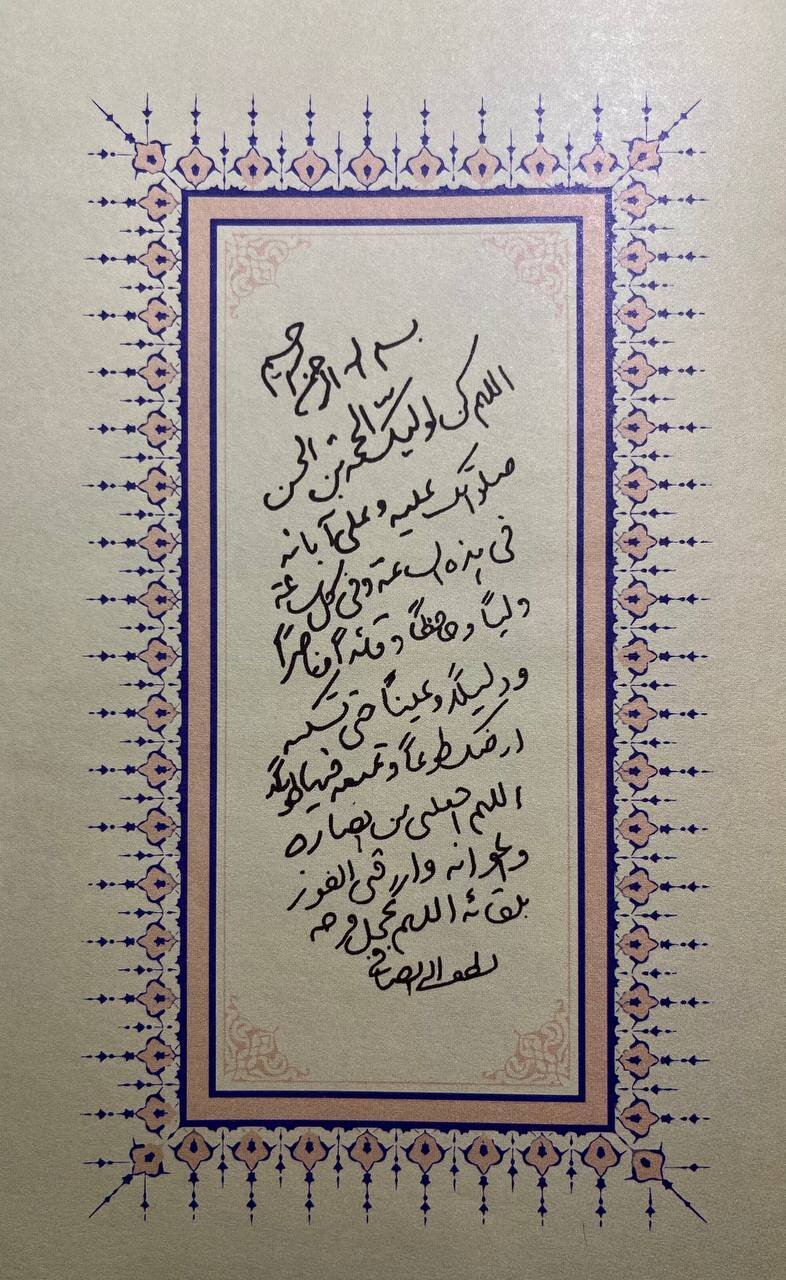 بسم الله الرحمن الرحیم
اللهم کن لولیّک الحجة بن الحسن
صلواتک علیه و علی آبائه
فی هذه الساعة و فی کل ساعة
ولیاً و حافظاً و قائداً و ناصراً
و دلیلاً و عیناً حتی تسکنه
ارضک طوعاً و تمتعه فیها طویلاً
اللهم اجعلنی من انصاره
و اعوانه وارزقنی الفوز
بلقائه اللهم عجل فرجه
لطف الله الصافی